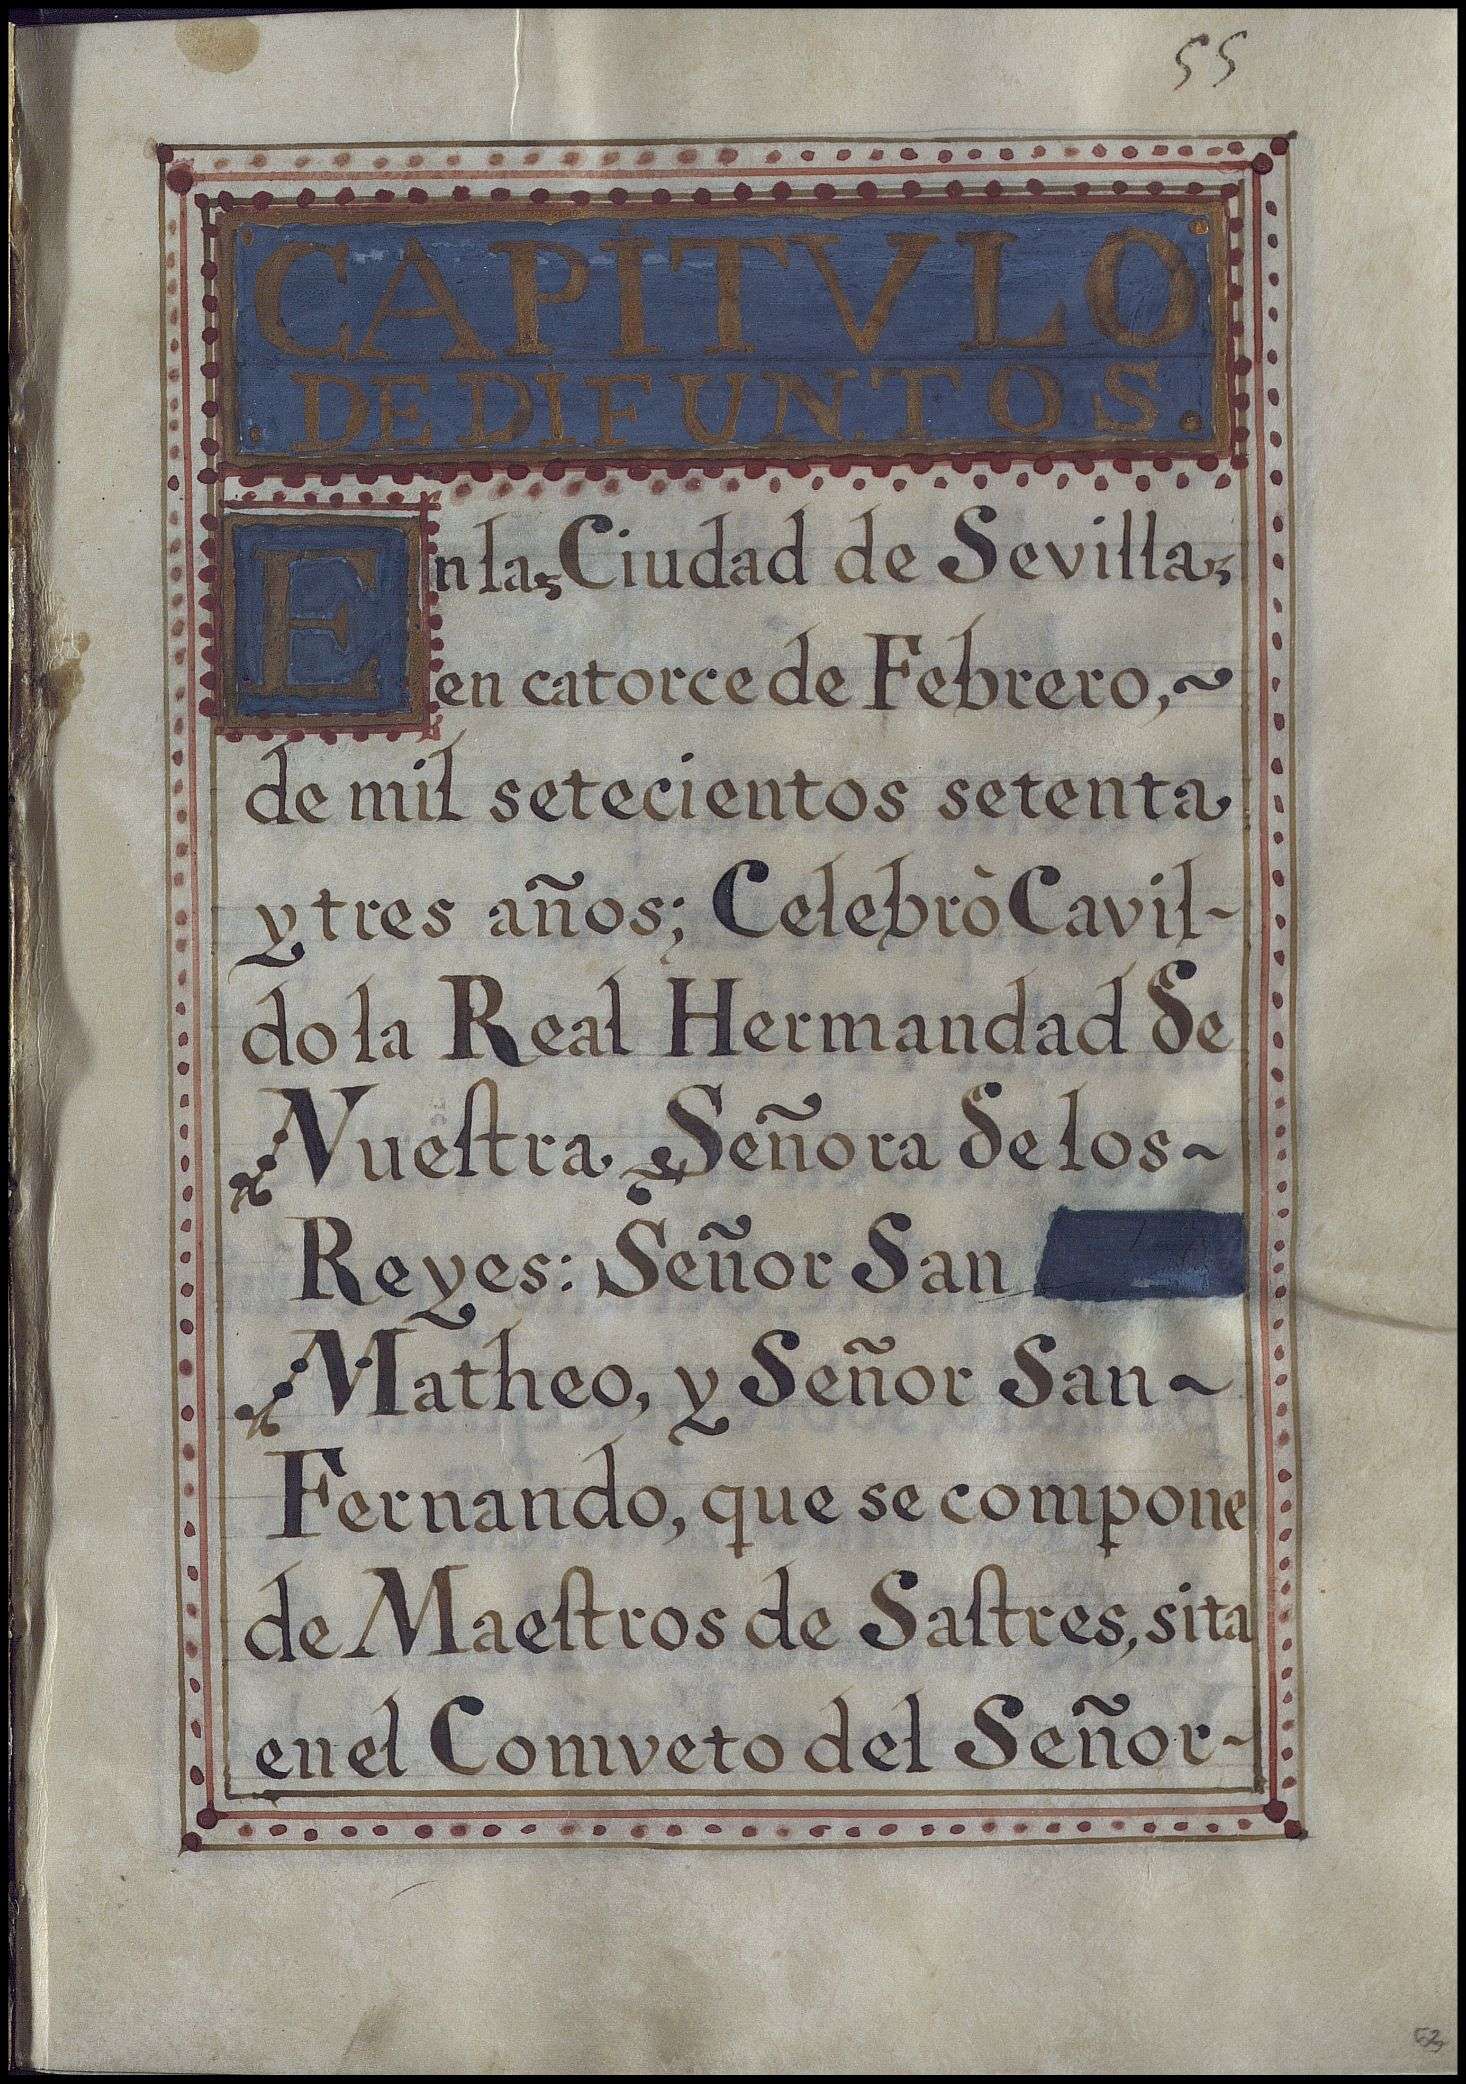 55
CAPITVLO
DE DIFUNTOS.
En la Ciudad de Sevilla,
en catorce de Febrero, ~
de mil setecientos setenta
y tres años; Celebrò Cavil-
do la Real Hermandad de
Nuestra Señora de los ~
Reyes: Señor San
Matheo, y Señor San ~
Fernando, que se compone
de Maestros de Sastres, sita
en el Comveto del Señor ~